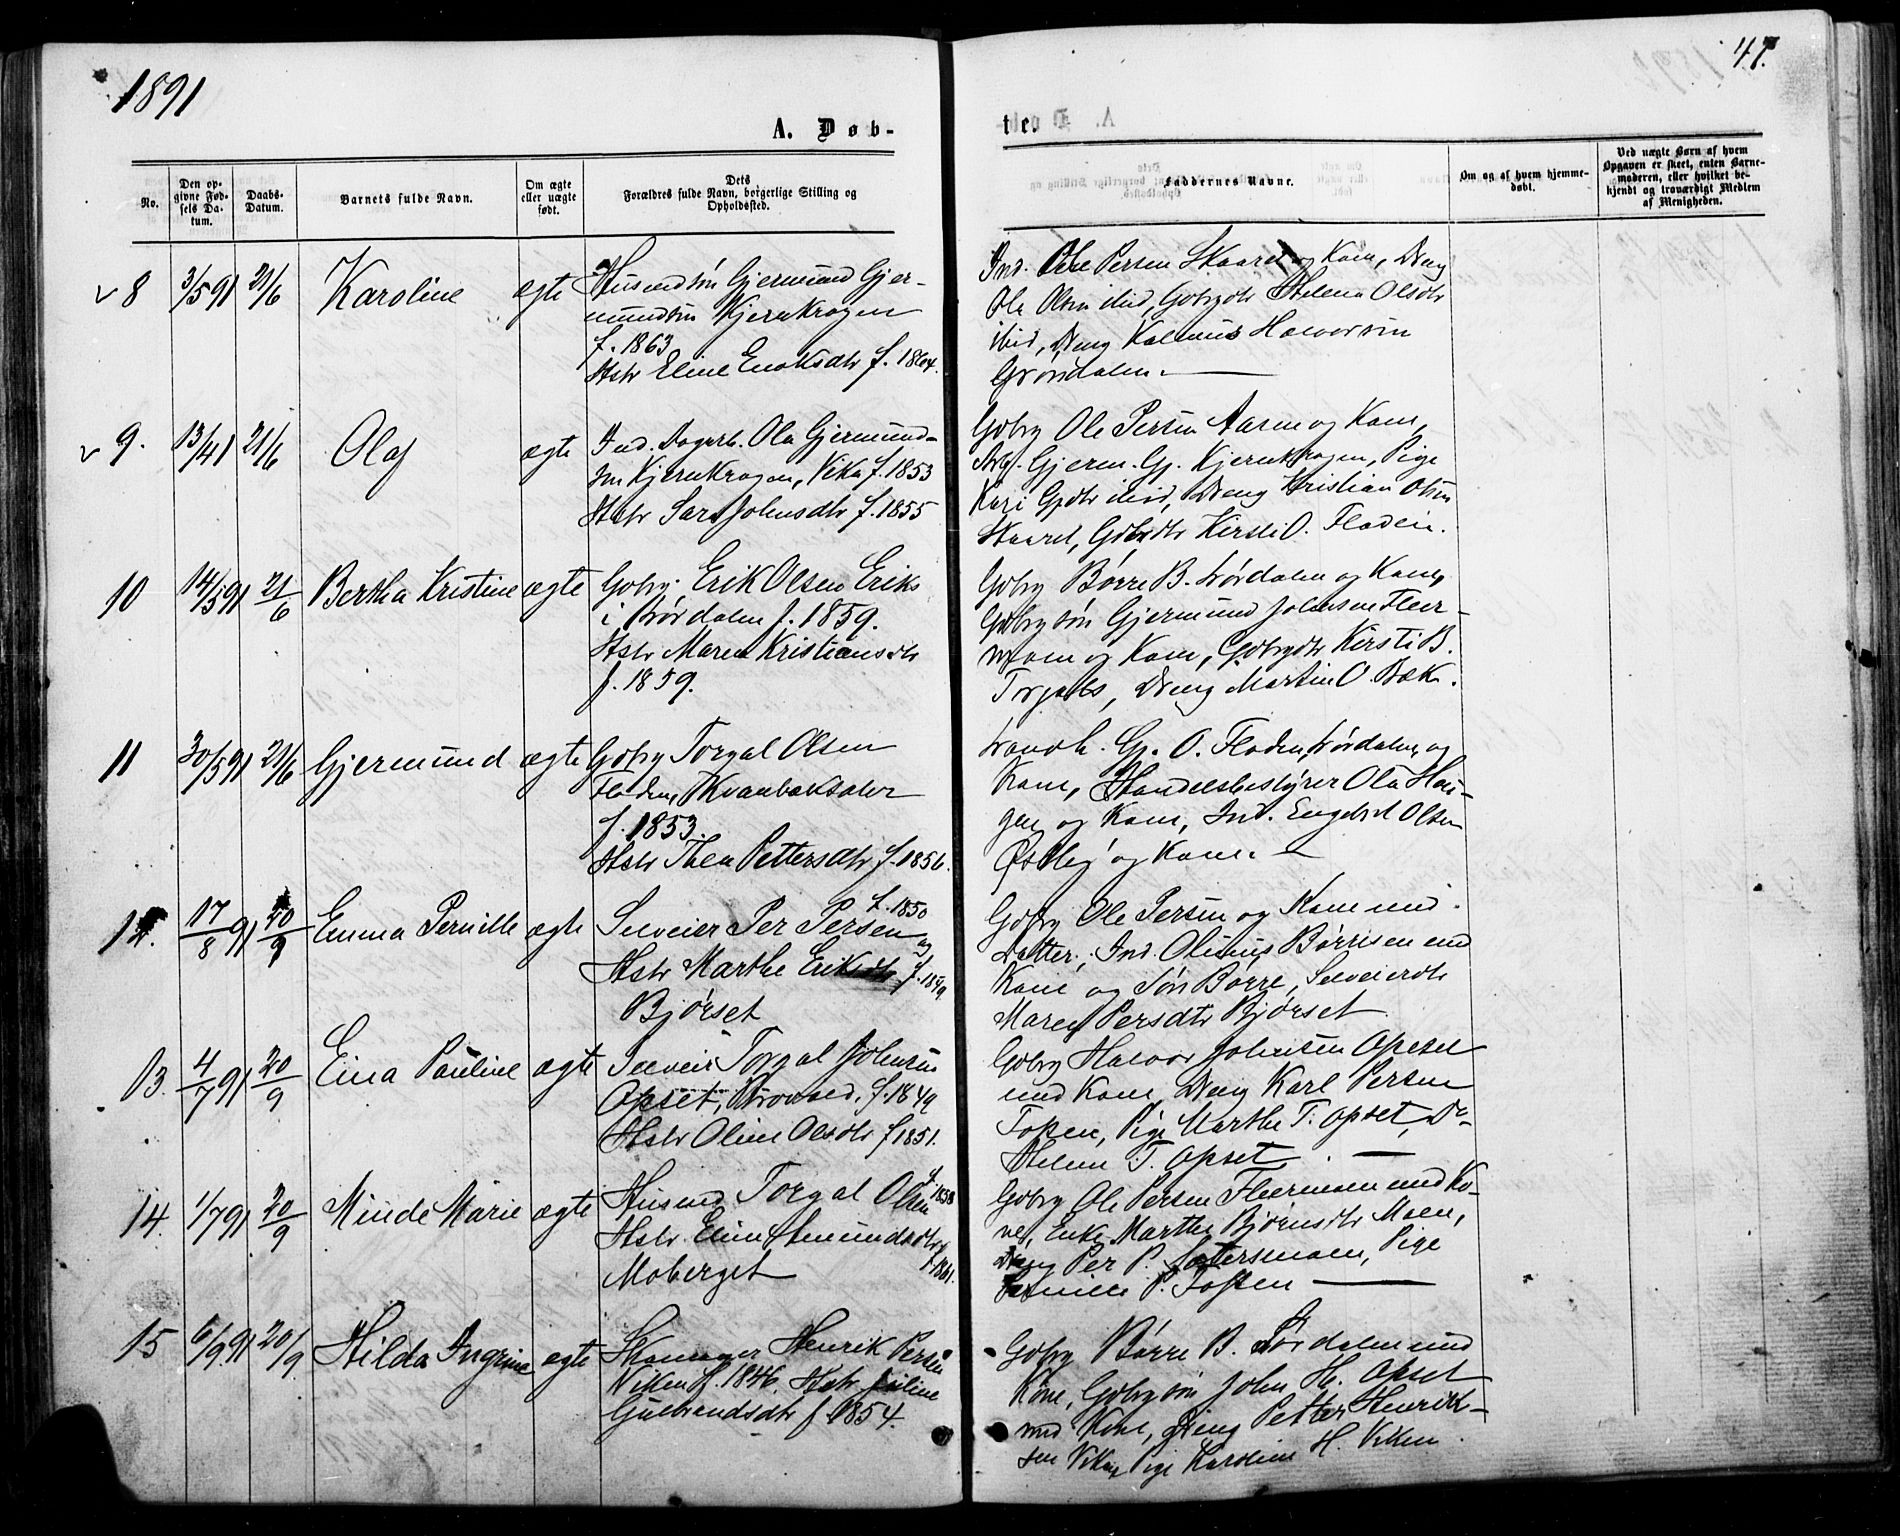 1891
47.
A. Døb-
te.
No.
Den op-
givne Fød-
sels Da-
tum.
Daabs-
Datum.
Barnets fulde Navn.
Om ægte
eller uægte
født.
Dets
Forældres fulde Navn, borgerlige Stilling og
Opholdssted.
Faddernes Navne.
Om og af hvem hjemme-
døbt.
Ved uægte Børn af hvem
Opgaven er skeet, enten Barne-
moderen, eller hvilket be-
kjendt og troværdigt Medlem
af Menigheden.
v 8 3/5 91 21/6 Karoline ægte
Gjermund Gjer-
mundsen Kjernkrogen
f. 1863
Hstr Eline Enoksdtr f. 1864.
Ind. Ole Persen Skaaret og Kone, Dreng
Ole Olsen ibid, Gbrgdtr Helena Olsdtr
ibid, Dreng Halvorsen
Grøndalen.
v 9. 13/4 91 21/6 Olaf ægte
Ind. Dagarb. Ola Gjermund-
sen Kjernkrogen, Vika f. 1853
Hstr Sara Johnsdtr f. 1855
Gbrg Ole Persen Aasen og Kone,
Arb. Gjerm. Gj. Kjernkrogen, Pige
Kari Gjdtr ibid, Dreng Kristian Olsen
Skaaret, Gbrdtr Kirsti O. Floden.
10 14/5 91 21/6 Bertha Kristine ægte
Gbrg. Erik Olsen Eriks
i Sørdalen f. 1859.
Hstr Maren Kristiansdtr
f. 1859.
Gbrg Børre B. Sørdalen og Kone,
Gbrgsøn Gjermund Johnsen Fleer-
moen og Kone, Gbrgdtr Kirsti B.
Torgals, Dreng Martin O. Bæk.
11 30/5 91 21/6 Gjermund ægte
Gbrg Torgal Olsen
Floden, Kvanbæksæter
f. 1853.
Hstr Thea Pettersdtr f. 1856.
Gj. O. Floden, Sørdalen, og
Kone, Handelsbestyrer Ola Hau-
gen og Kone, Ind. Engebret Olsen
Østby og Kone.
12. 17/8 91 20/9 Emma Pernille ægte
f. 1850
Selveier Per Persen
og
Hstr Marthe Eriksdtr f. 1849
Bjørset
Gbrg Ole Persen og Kone med
Datter, Ind. Olinus Børresen med
Kone og Søn Børre, Selveierdtr
Maren Persdtr Bjørset
13. 4/7 91 20/9 Eina Pauline ægte
Selveier Torgal Johnsen
Opset, f. 1849
Hstr Oline Olsdtr f. 1851.
Gbrg Halvor Johnsen Opset
med Kone, Dreng Karl Persen
Fossen, Pige Marthe T. Opset, Do
Helene T. Opset.
14. 1/7 91 20/9 Minde Marie ægte
f. 1858
Husmd Torgal Olsen
Hstr Eline Amundsdtr
f. 1861.
Moberget
Gbrg Ole Persen Fleermoen med Ko-
ne, Enke Marthe Bjørnsdtr Moen,
Dreng Per P. Sætersmoen, Pige
Pernille P. Fossen
15 6/9 91 20/9 Hilda Ingrine ægte
Skomager Henrik Persen
Viken f. 1846. Hstr Juline
Gulbrandsdtr f. 1854.
Gbrg Børre B. Sørdalen med
Kone, Gbrgsøn John H. Opset
med Kone, Dreng Petter Henrik-
sen Viken, Pige Karoline H. Viken.